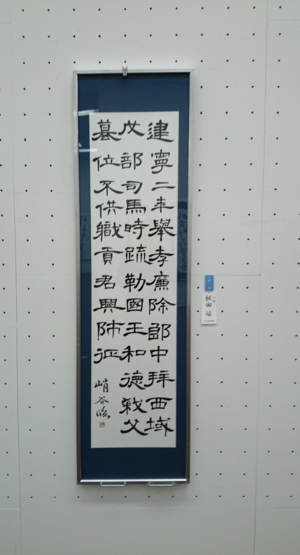 建寧二年舉孝廉除郎中拜西域
戊部司馬時疏勒國王和德弒父
篡位不供職貢君興師征
峭谷臨